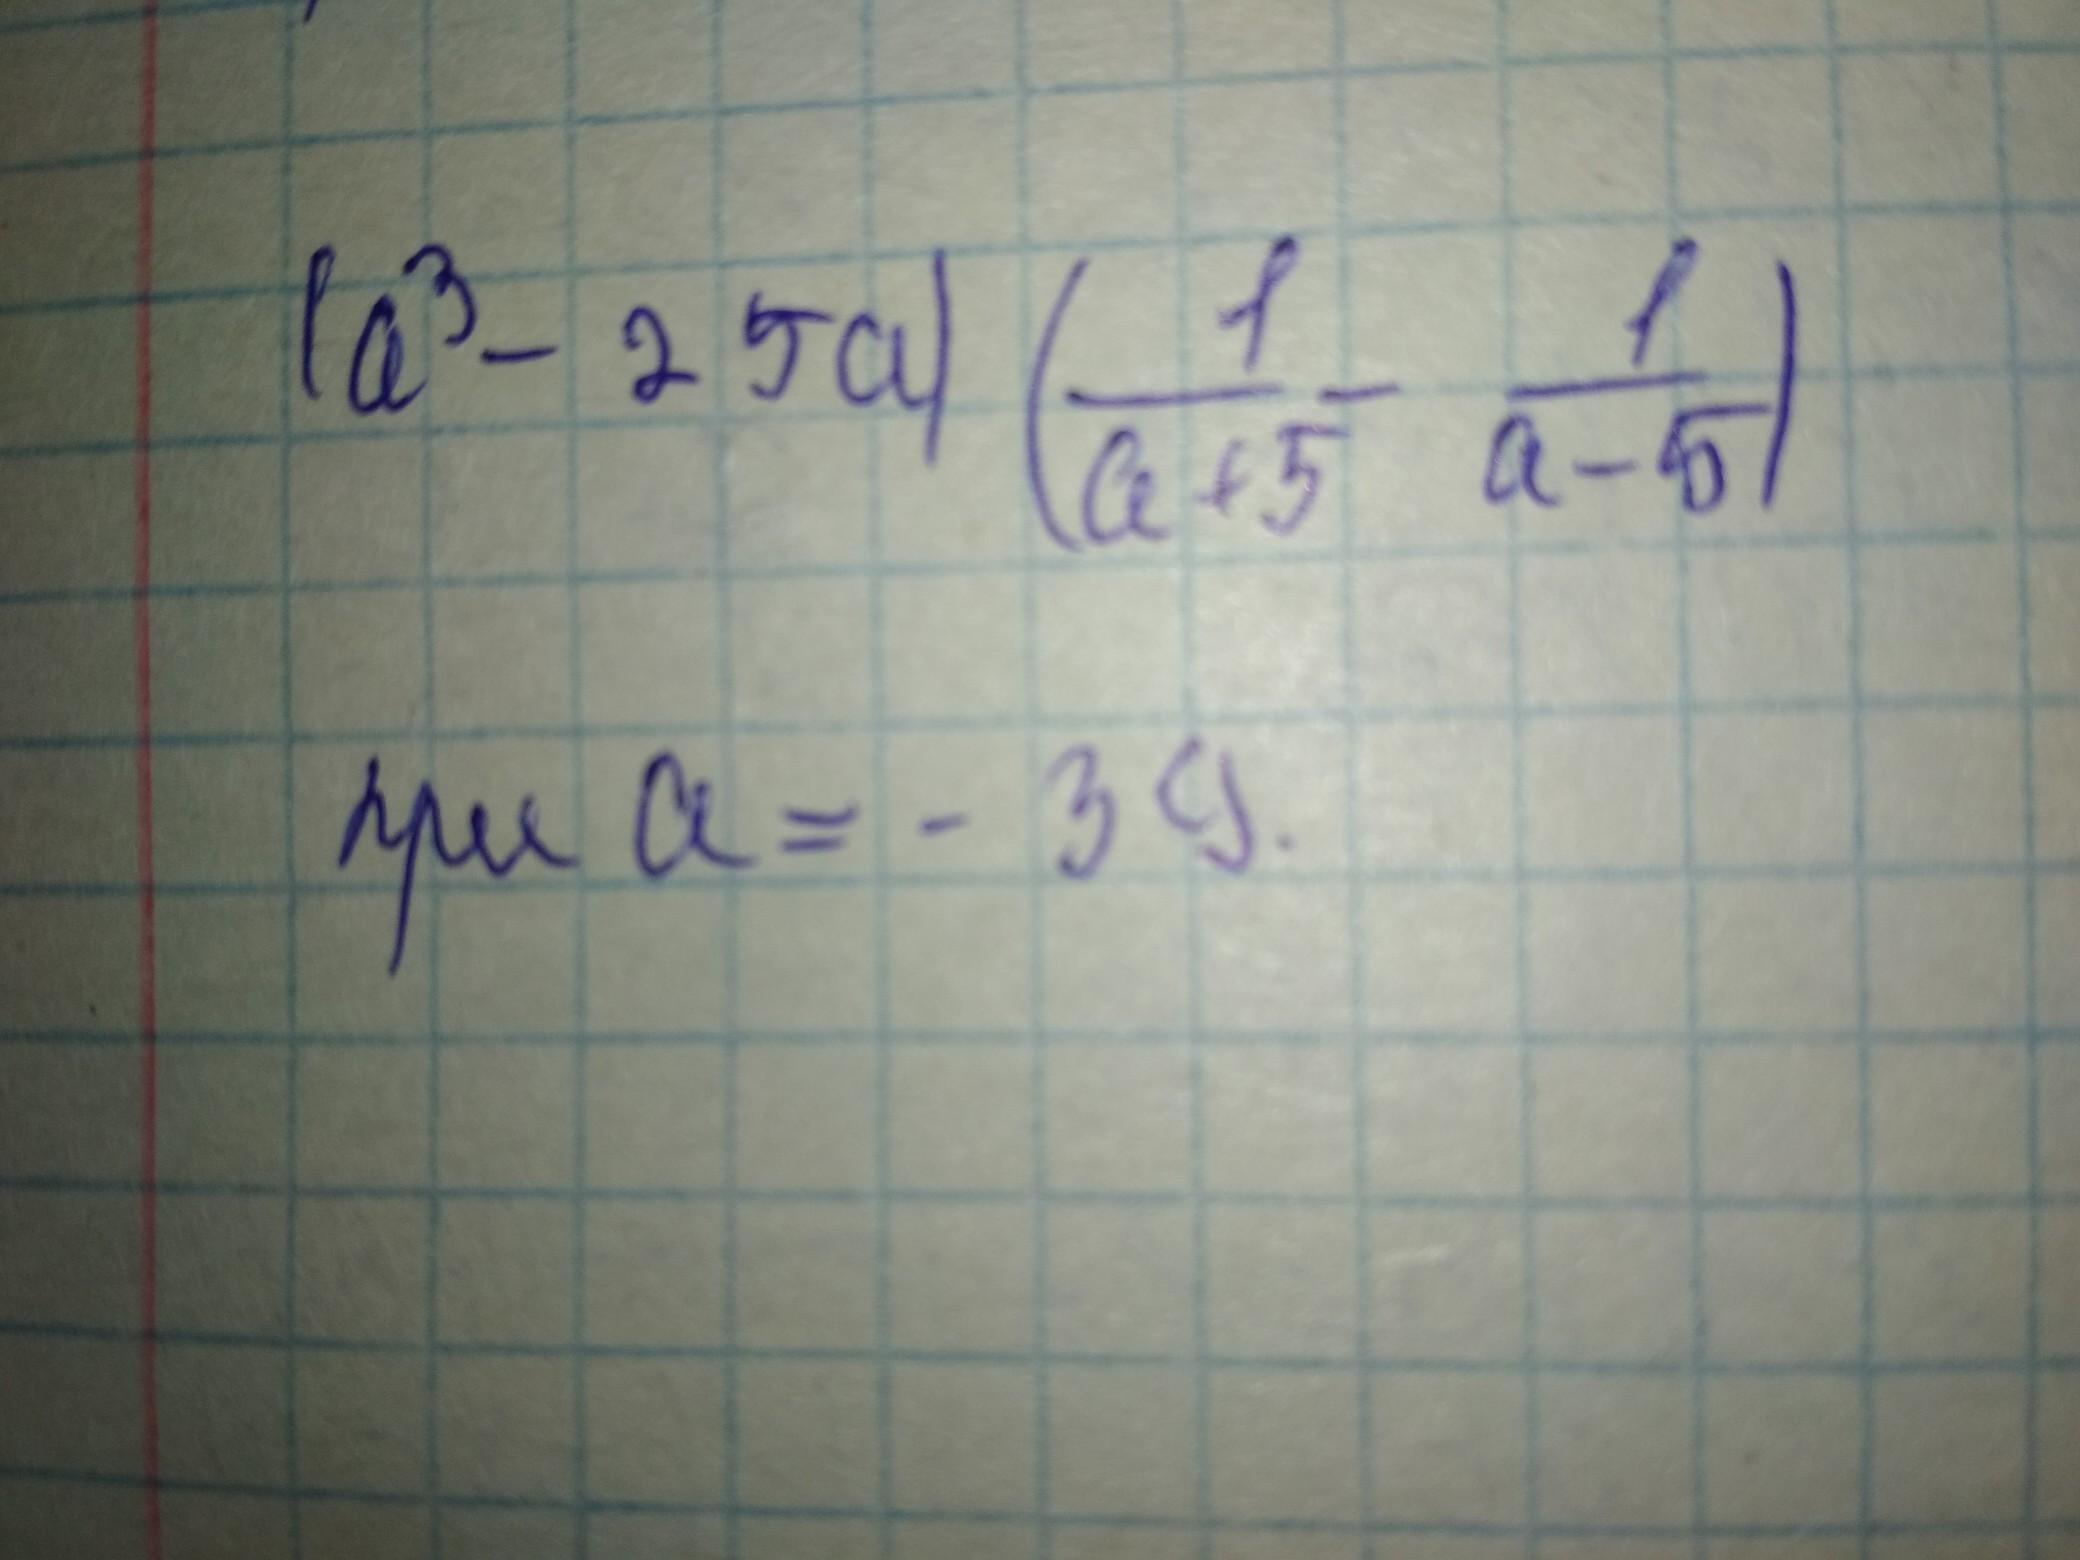 (a³ - 25a) (1/(a+5) - 1/(a-5))
при a = - 39.